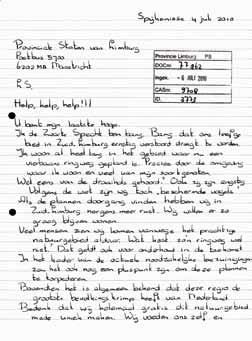 Spijkenisse 4 juli 2010
Provinciale Staten van Limburg
Postbus 5700
6202 MA Maastricht
Provincie Limburg PS
DOCnr.
Ingek. - 6 JULI 2010
CASnr. 
ID.
L.S.
Help, help, help!!!
U bent mijn laatste hoop.
In de Zwarte Specht ben bang. Bang dat ons leefge-
bied in Zuid-Limburg ernstig verstoord dreigt te worden.
Ik woon al heel lang in het gebied waar nu een
ring weg gepland is. Precies door de omgeving
waar ik woon en veel van mijn soortgenoten.
Wel eens van de draaihals gehoord? Ook zij zijn ernstig
Volgens de wet zijn wij toch "beschermde vogels"
Als de plannen doorgang vinden hebben wij in
Zuid-Limburg nergens meer rust. Wij willen er zo
graag blijven wonen.
Veel mensen zien wij komen vanwege het prachtige
natuurgebied alduar. Wat kost zo'n ringweg wel
niet. Dat geldt ook voor onderhoud in de toekomst
In het kader van de actuele noodzakelijke bezuinigingen
zou het ook nog een pluspunt zijn om deze plannen
te
Bovendien het is algemeen bekend dat deze regio de
grootste bevolkingskrimp heeft van Nederland
Bedenk dat wij helemaal gratis dit natuurgebied
mede uniek maken. Wij voeden ons zelf en